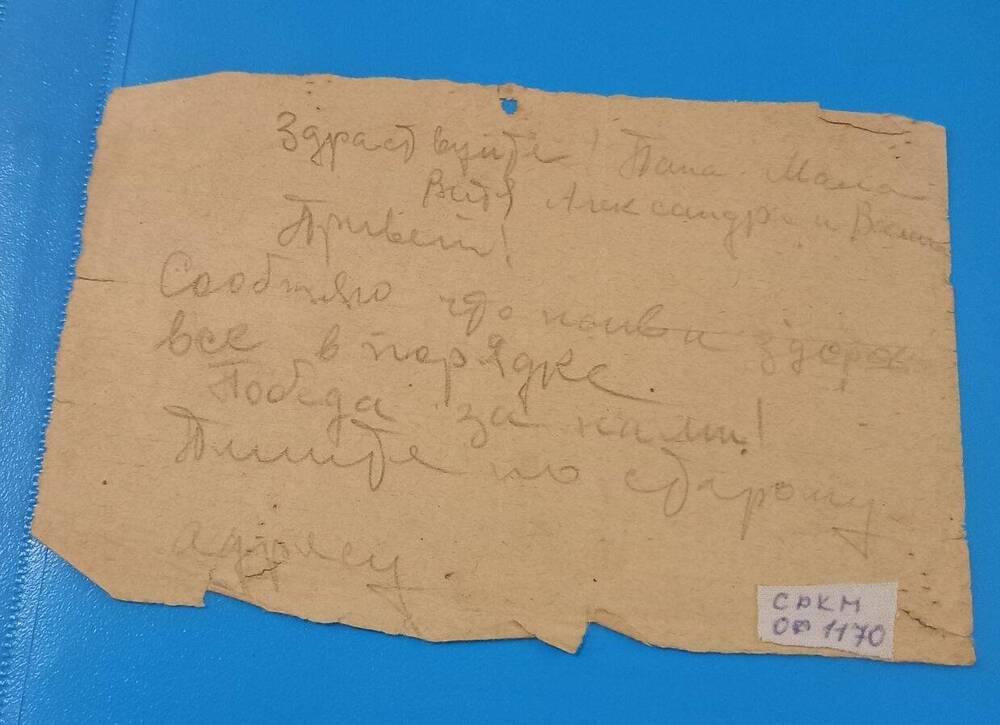 Здраствуйте! Папа. Мама
Витя Александра и
Привет!
Сообщяю что жив и здоров
все в порядке.
Победа за нами!
Пишите по старому
адресу.
СРКМ
ОФ 1170